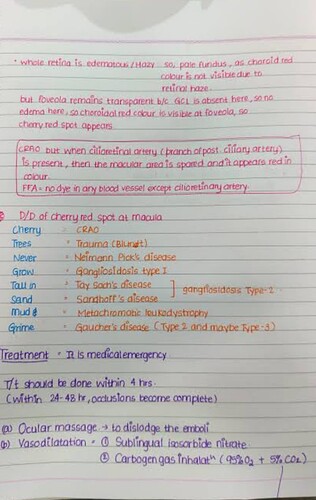 • whole retina is edematous/Hazy so, pale fundus, as choroid red
colour is not visible due to
retinal haze.
but foveola remains transparent b/c GCL is absent here, so no
edema here, so choroidal red colour is visible at foveola, so
cherry red spot appears
CRAO but when cilioretinal artery (branch of post. ciliary artery)
is present, then the macular area is spared and it appears red in
colour.
FFA = no dye in any blood vessel except cilioretinary artery.
D/D of cherry red spot at macula
Cherry • CRAO
Trees • Trauma (Blunt)
Never • Neimann Pick's disease
Grow • Gangliosidosis type I
Tall in • Tay Sach's disease ] gangliosidosis Type-2
Sand • Sandhoff's disease
Mud & • Metachromatic leukodystrophy
Grime • Gaucher's disease (Type 2 and maybe Type-3)
Treatment • It is medical emergency
T/t should be done within 4 hrs.
(within 24-48 hr, occlusions become complete)
(a) Ocular massage → to dislodge the emboli
(b) Vasodilatation • ① Sublingual isosorbide nitrate
② Carbogen gas inhalatn (95% O2 + 5% CO2)